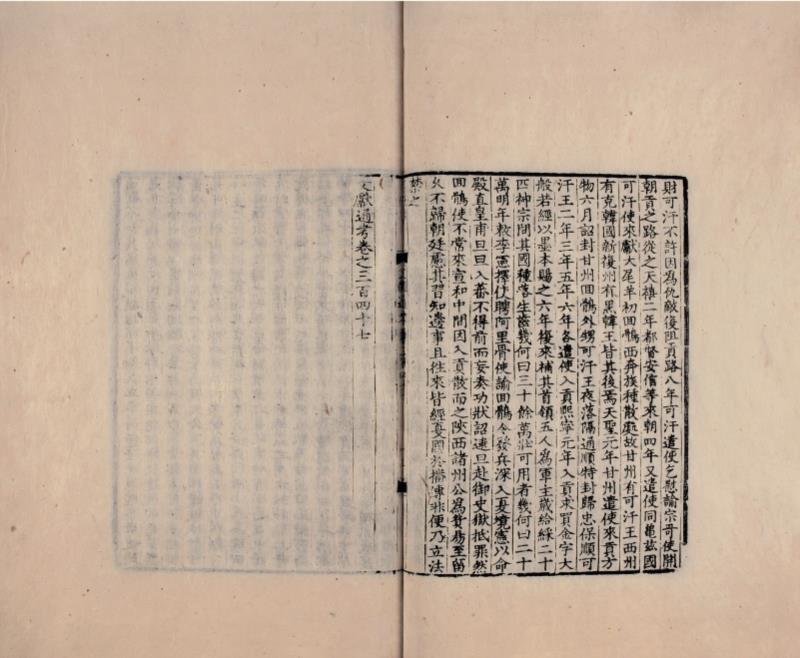 財可汗不許因為仇敵復阻貢路八年可汗遣使乞慰諭宗哥使開
朝貢之路從之天禧二年都督安信等來朝四年又遣使同龜茲國
可汗使來獻大尾羊初回鶻西奔族種散處故甘州有可汗王西州
有克韓國新復州有黑韓王皆其後焉天聖元年甘州遣使來貢方
物六月詔封甘州回鶻外甥可汗王夜落隔通順特封歸忠保順可
汗王二年三年五年六年各遣使入貢熙寧元年入貢求買金字大
般若經以墨本賜之六年復來補其首領五人為軍主歲給綵二十
匹神宗問其國種落生齒幾何曰三十餘萬壯可用者幾何曰二十
萬明年敕李憲擇使聘阿里骨使諭回鶻令發兵深入夏境憲以命
殿直皇甫旦旦入蕃不得前而妄奏功狀詔逮旦赴御史獄抵罪然
回鶻使不常來宣和中間因入貢散而之陝西諸州公為貿易至留
久不歸朝廷慮其習知邊事且往來皆經夏國於播傳非便乃立法
禁之
文獻通考卷之三百四十七